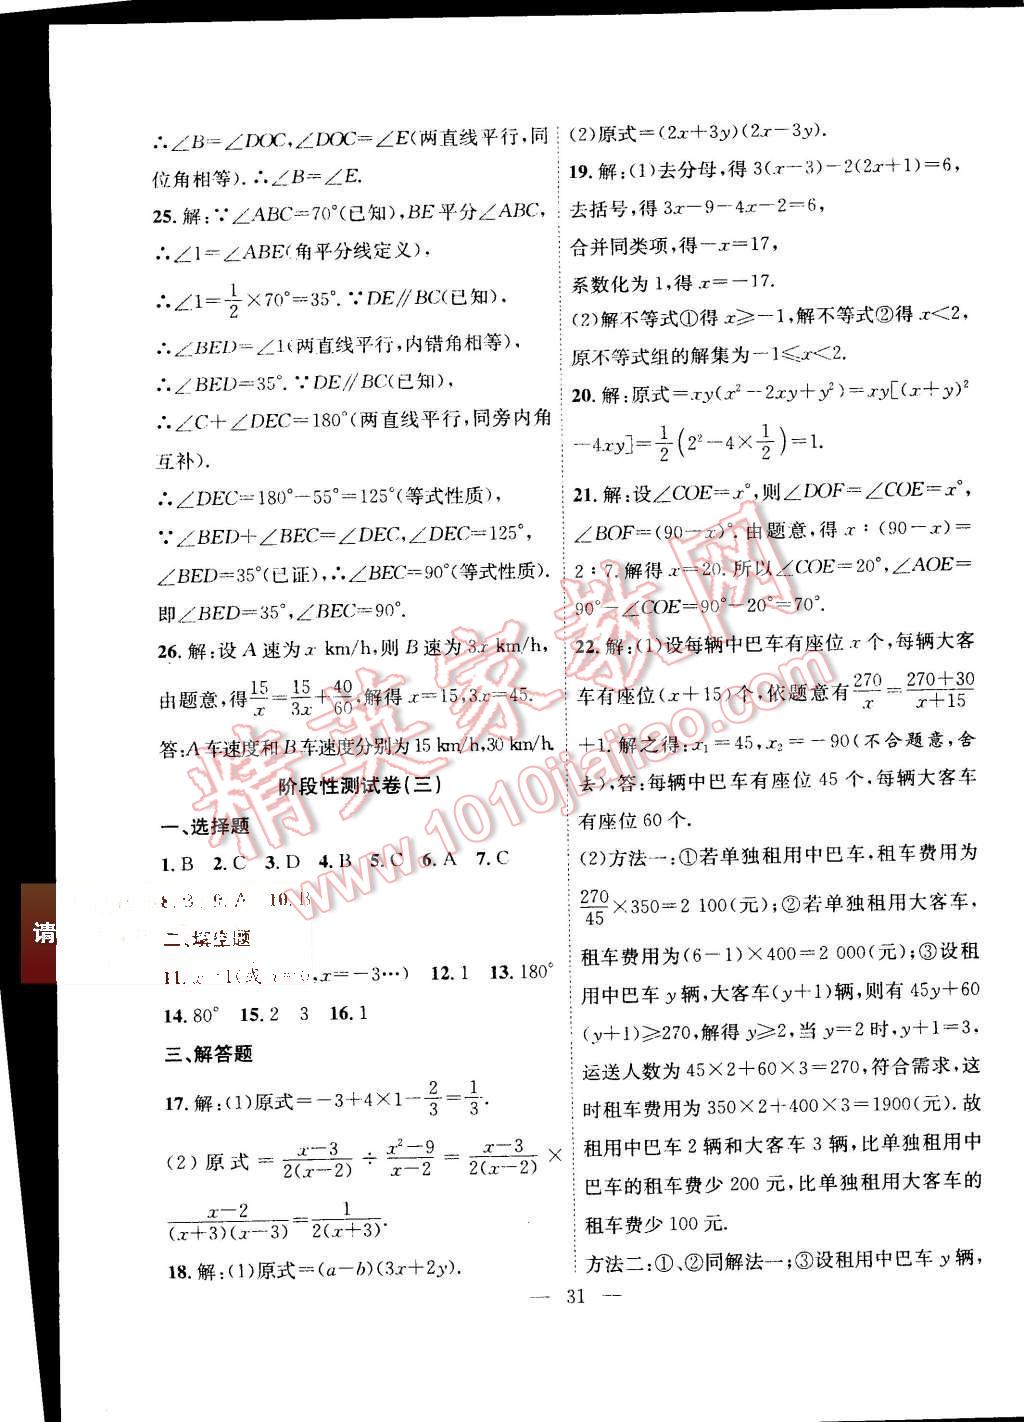 ∴∠B=∠DOC,∠DOC=∠E(两直线平行,同
位角相等).∴∠B=∠E.
25.解:∵∠ABC=70°(已知),BE平分∠ABC,
∴∠1=∠ABE(角平分线定义),
∴∠1=1/2×70°=35°.∵DE∥BC(已知),
∴∠BED=∠1(两直线平行,内错角相等),
∴∠BED=35°.∵DE∥BC(已知),
∴∠C+∠DEC=180°(两直线平行,同旁内角
互补).
∴∠DEC=180°-55°=125°(等式性质),
∵∠BED+∠BEC=∠DEC,∠DEC=125°,
∠BED=35°(已证),∴∠BEC=90°(等式性质).
即∠BED=35°,∠BEC=90°.
26.解:设A速为x km/h,则B速为3x km/h,
由题意,得15/x=15/3x+40/60,解得x=15,3x=45.
答:A车速度和B车速度分别为15 km/h,30 km/h.
阶段性测试卷(三)
一、选择题
1.B 2.C 3.D 4.B 5.C 6.A 7.C
8.B 9.A 10.B
二、填空题
11.x=1(或x=0,x=-3…) 12.1 13.180°
14.80° 15.2 3 16.1
三、解答题
17.解:(1)原式=-3+4×1-2/3=1/3.
(2)原式=(x-3)/(2(x-2))÷(x²-9)/(x-2)=(x-3)/(2(x-2))×
(x-2)/((x+3)(x-3))=1/(2(x+3)).
18.解:(1)原式=(a-b)(3x+2y).
(2)原式=(2x+3y)(2x-3y).
19.解:(1)去分母,得3(x-3)-2(2x+1)=6,
去括号,得3x-9-4x-2=6,
合并同类项,得-x=17,
系数化为1,得x=-17.
(2)解不等式①得x≥-1,解不等式②得x<2,
原不等式组的解集为-1≤x<2.
20.解:原式=xy(x²-2xy+y²)=xy[(x+y)²
-4xy]=1/2(2²-4×1/2)=1.
21.解:设∠COE=x°,则∠DOF=∠COE=x°,
∠BOF=(90-x)°.由题意,得x∶(90-x)=
2∶7.解得x=20.所以∠COE=20°,∠AOE=
90°-∠COE=90°-20°=70°.
22.解:(1)设每辆中巴车有座位x个,每辆大客
车有座位(x+15)个,依题意有270/x=(270+30)/(x+15)
+1.解之得:x₁=45,x₂=-90(不合题意,舍
去),答:每辆中巴车有座位45个,每辆大客车
有座位60个.
(2)方法一:①若单独租用中巴车,租车费用为
270/45×350=2 100(元);②若单独租用大客车,
租车费用为(6-1)×400=2 000(元);③设租
用中巴车y辆,大客车(y+1)辆,则有45y+60
(y+1)≥270,解得y≥2,当y=2时,y+1=3,
运送人数为45×2+60×3=270,符合需求,这
时租车费用为350×2+400×3=1900(元).故
租用中巴车2辆和大客车3辆,比单独租用中
巴车的租车费少200元,比单独租用大客车的
租车费少100元.
方法二:①、②同解法一;③设租用中巴车y辆,
— 31 —
精英家教网
www.1010jiajiao.com
请